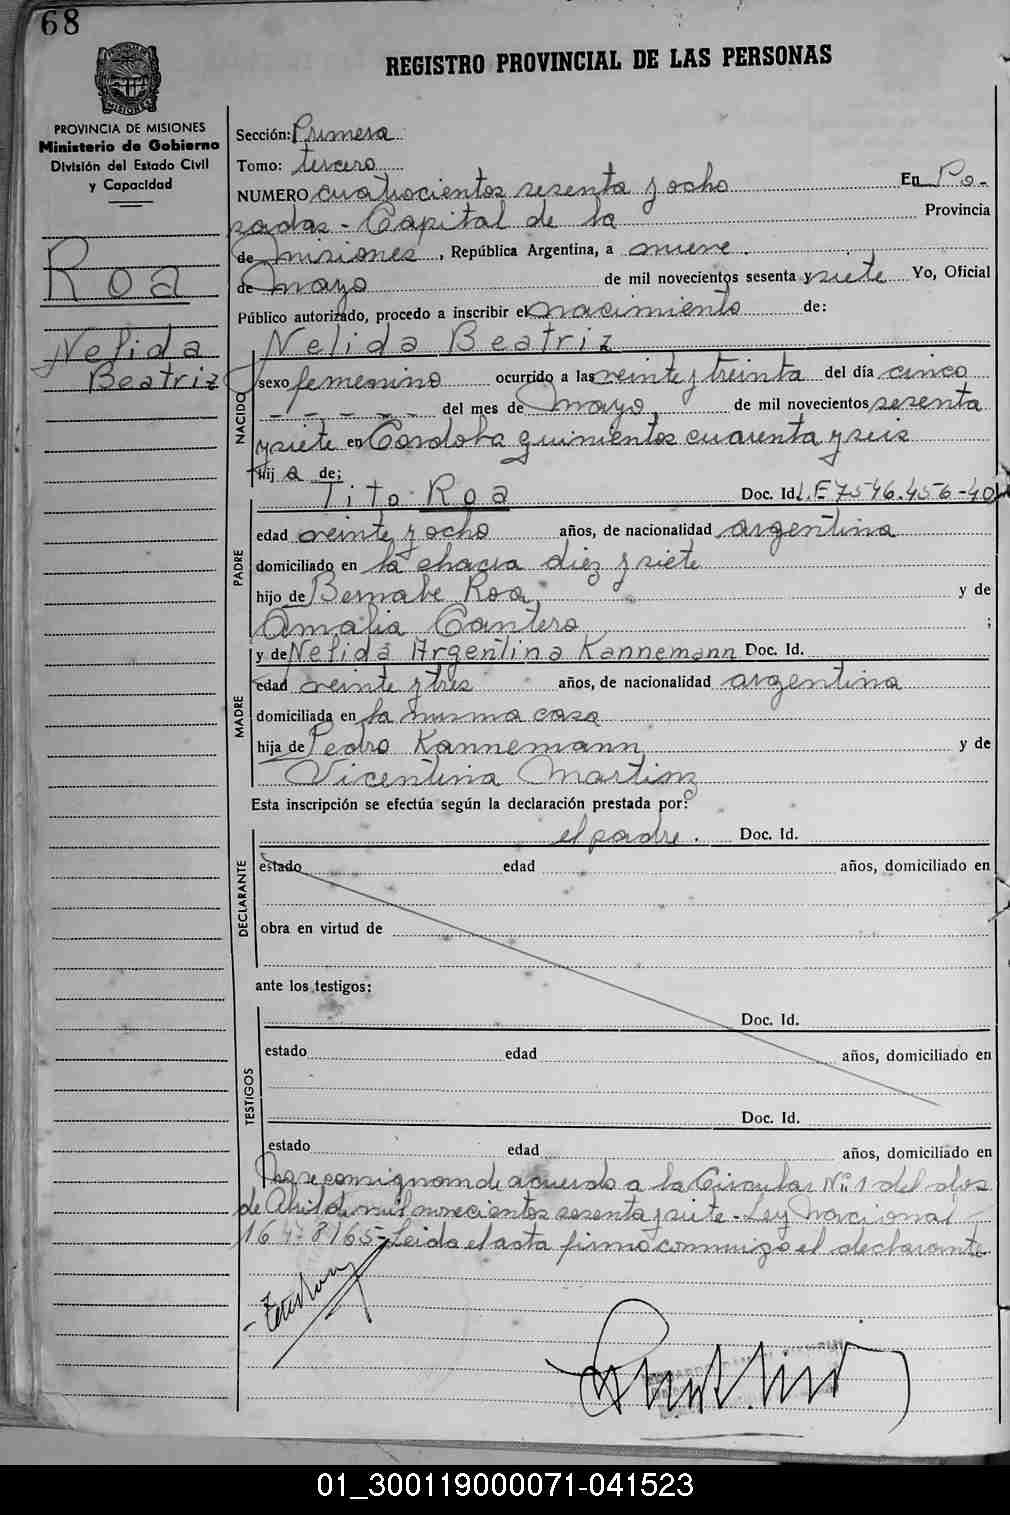 68
REGISTRO PROVINCIAL DE LAS PERSONAS
MISIONES
PROVINCIA DE MISIONES
Ministerio de Gobierno
División del Estado Civil
y Capacidad
Roa
Nelida
Beatriz
Sección: Primera
Tomo: tercero
NUMERO cuatrocientos sesenta y ocho En Po-
sadas - Capital de la Provincia
de Misiones, República Argentina, a nueve
de mayo de mil novecientos sesenta y siete Yo, Oficial
Público autorizado, procedo a inscribir el nacimiento de:
Nelida Beatriz
NACIDO
sexo femenino ocurrido a las veinte y treinta del día cinco
- - - - - del mes de Mayo de mil novecientos sesenta
y siete en Cordoba quinientos cuarenta y seis
hij a de;
Tito Roa Doc. Id. L.E 7546.456-40
PADRE
edad veinte y ocho años, de nacionalidad argentina
domiciliado en la chacra diez y siete
hijo de Bernabe Roa y de
Amalia Cantero ;
y de Nelida Argentina Kannemann Doc. Id.
MADRE
edad veinte y tres años, de nacionalidad argentina
domiciliada en la misma casa
hija de Pedro Kannemann y de
Vicentina Martinz
Esta inscripción se efectúa según la declaración prestada por:
el padre. Doc. Id.
DECLARANTE
estado edad años, domiciliado en
obra en virtud de
ante los testigos:
Doc. Id.
TESTIGOS
estado edad años, domiciliado en
Doc. Id.
estado edad años, domiciliado en
No se consignan de acuerdo a la Circular Nº 1 del dos
de Abril de mil novecientos sesenta y siete - Ley Nacional
16478/65 - Leida el acta firmó conmigo el declarante
01_300119000071-041523